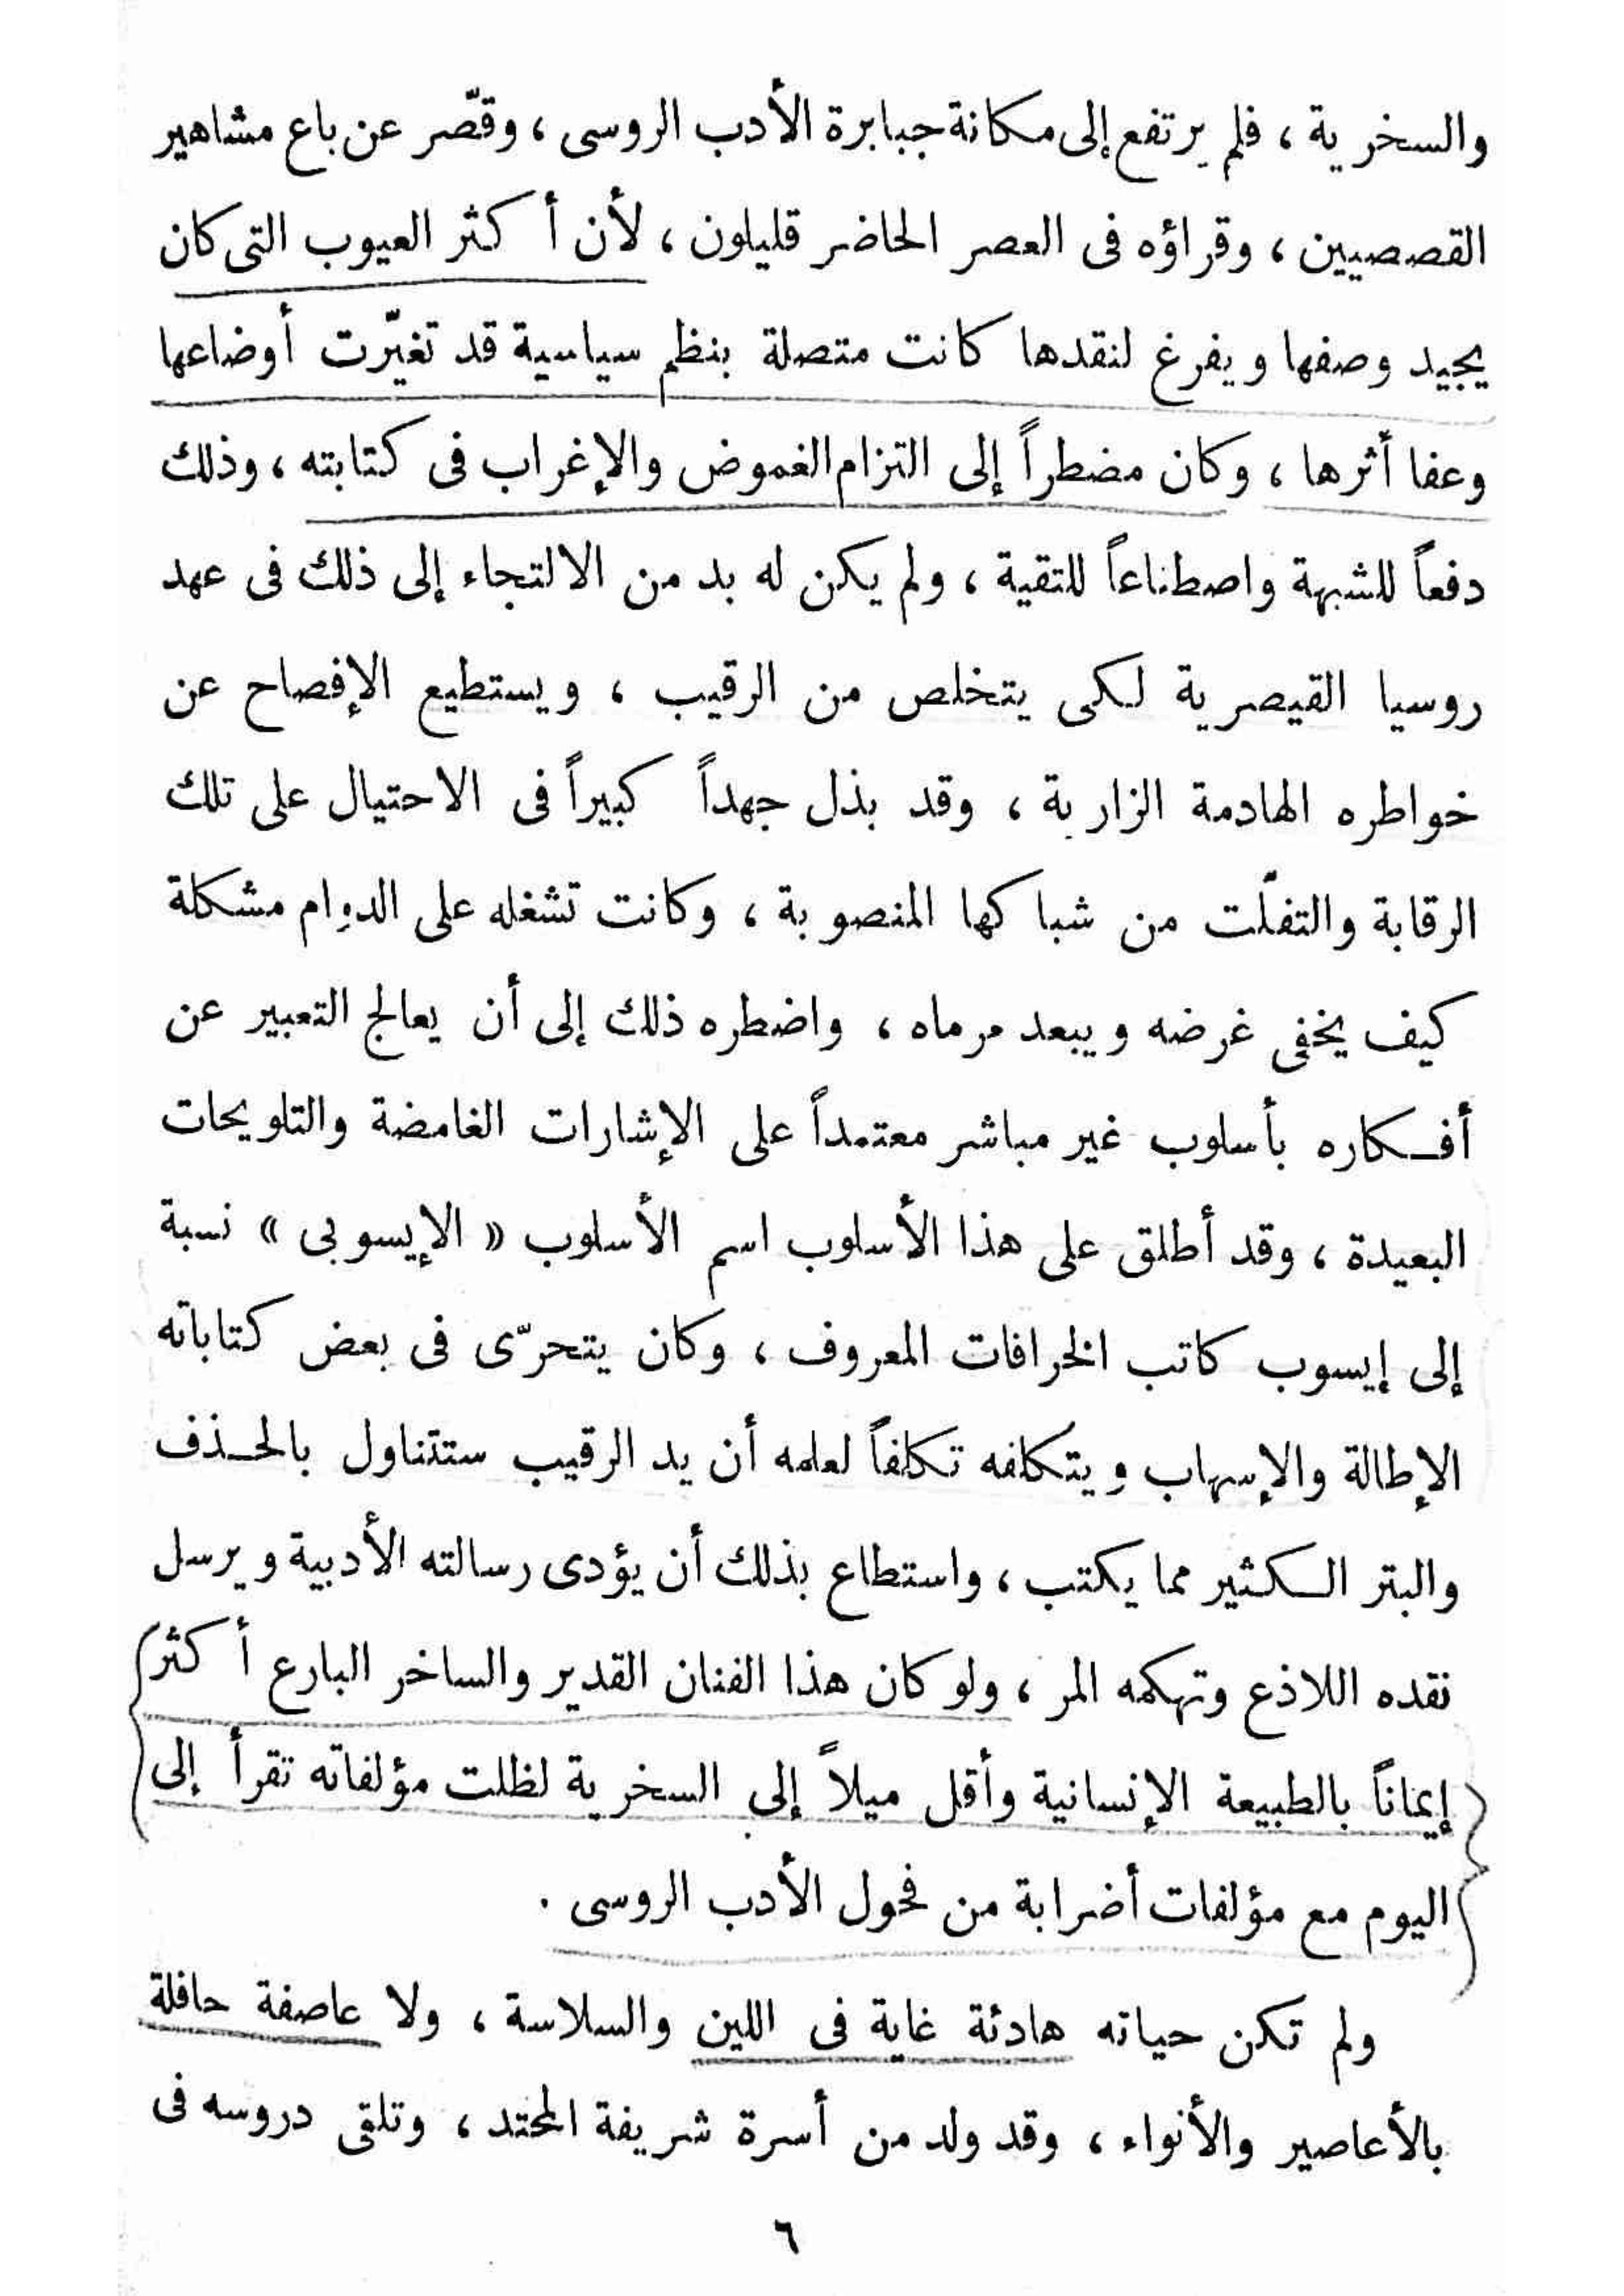 والسخرية ، فلم يرتفع إلى مكانة جبابرة الأدب الروسى ، وقصّر عن باع مشاهير
القصصيين ، وقراؤه فى العصر الحاضر قليلون ، لأن أكثر العيوب التى كان
يجيد وصفها ويفرغ لنقدها كانت متصلة بنظم سياسية قد تغيّرت أوضاعها
وعفا أثرها ، وكان مضطراً إلى التزام الغموض والإغراب فى كتابته ، وذلك
دفعاً للشبهة واصطناعاً للتقية ، ولم يكن له بد من الالتجاء إلى ذلك فى عهد
روسيا القيصرية لكى يتخلص من الرقيب ، ويستطيع الإفصاح عن
خواطره الهادمة الزارية ، وقد بذل جهداً كبيراً فى الاحتيال على تلك
الرقابة والتفلّت من شباكها المنصوبة ، وكانت تشغله على الدوام مشكلة
كيف يخفى غرضه ويبعد مرماه ، واضطره ذلك إلى أن يعالج التعبير عن
أفكاره بأسلوب غير مباشر معتمداً على الإشارات الغامضة والتلويحات
البعيدة ، وقد أطلق على هذا الأسلوب اسم الأسلوب « الإيسوبى » نسبة
إلى إيسوب كاتب الخرافات المعروف ، وكان يتحرّى فى بعض كتاباته
الإطالة والإسهاب ويتكلفه تكلفاً لعلمه أن يد الرقيب ستتناول بالحذف
والبتر الكثير مما يكتب ، واستطاع بذلك أن يؤدى رسالته الأدبية ويرسل
نقده اللاذع وتهكمه المر ، ولو كان هذا الفنان القدير والساخر البارع أكثر
إيماناً بالطبيعة الإنسانية وأقل ميلاً إلى السخرية لظلت مؤلفاته تقرأ إلى
اليوم مع مؤلفات أضرابة من فحول الأدب الروسى .
ولم تكن حياته هادئة غاية فى اللين والسلاسة ، ولا عاصفة حافلة
بالأعاصير والأنواء ، وقد ولد من أسرة شريفة المحتد ، وتلقى دروسه فى
٦